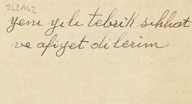 212142
yeni yılı tebrik sıhhat
ve afiyet dilerim